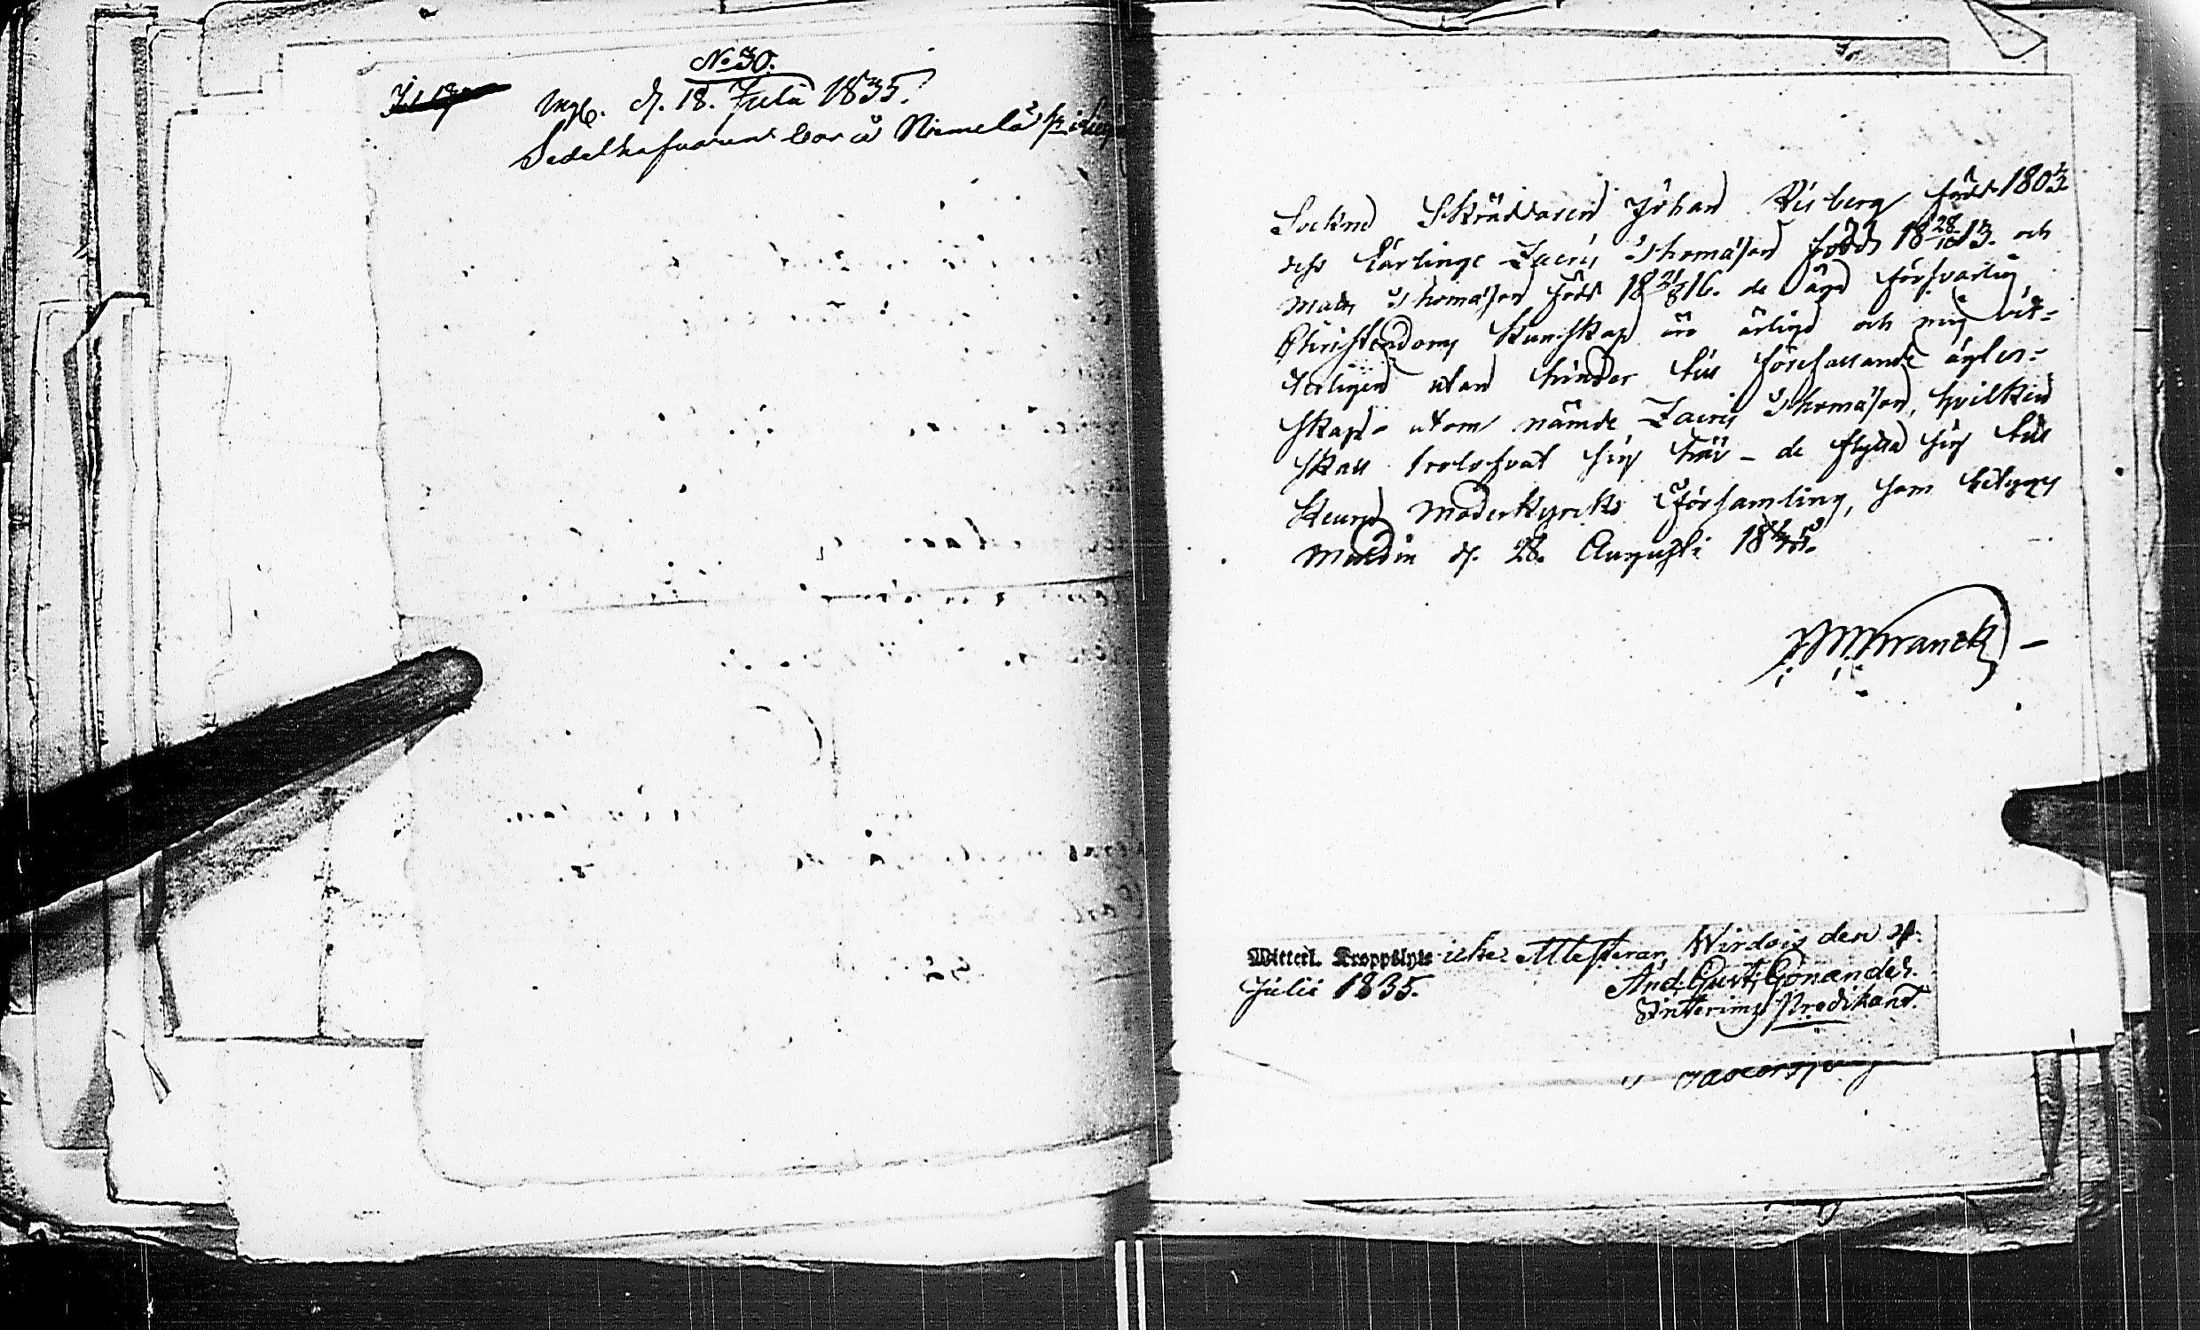 No 30.
Ingb. d. 18. Julii 1835.
Sedelhafvaren bor å Niemelä
Sockne Skräddaren Johan Kisberg född 1803
dess Lärlingar Zacris Thomasson född 18 28/10 13. och
Mats Thomasson född 18 21/8 16. de äga försvarlig
Christendoms Kunskap äro ärlige och mig vit-
terligen utan hinder till förefallande ägten-
skap - utom nämde Zacris Thomasson, hvilken
skall trolofvat sig här - de flytta sig till
Keuru Moderkyrko Församling, som betygas
d. 28. Augusti
Franck
Witterl. Kroppslyte icke. Attesterar, Wirdois den 4.
Julii 1835. And. Gust. Gonander.
Interims Predikant.